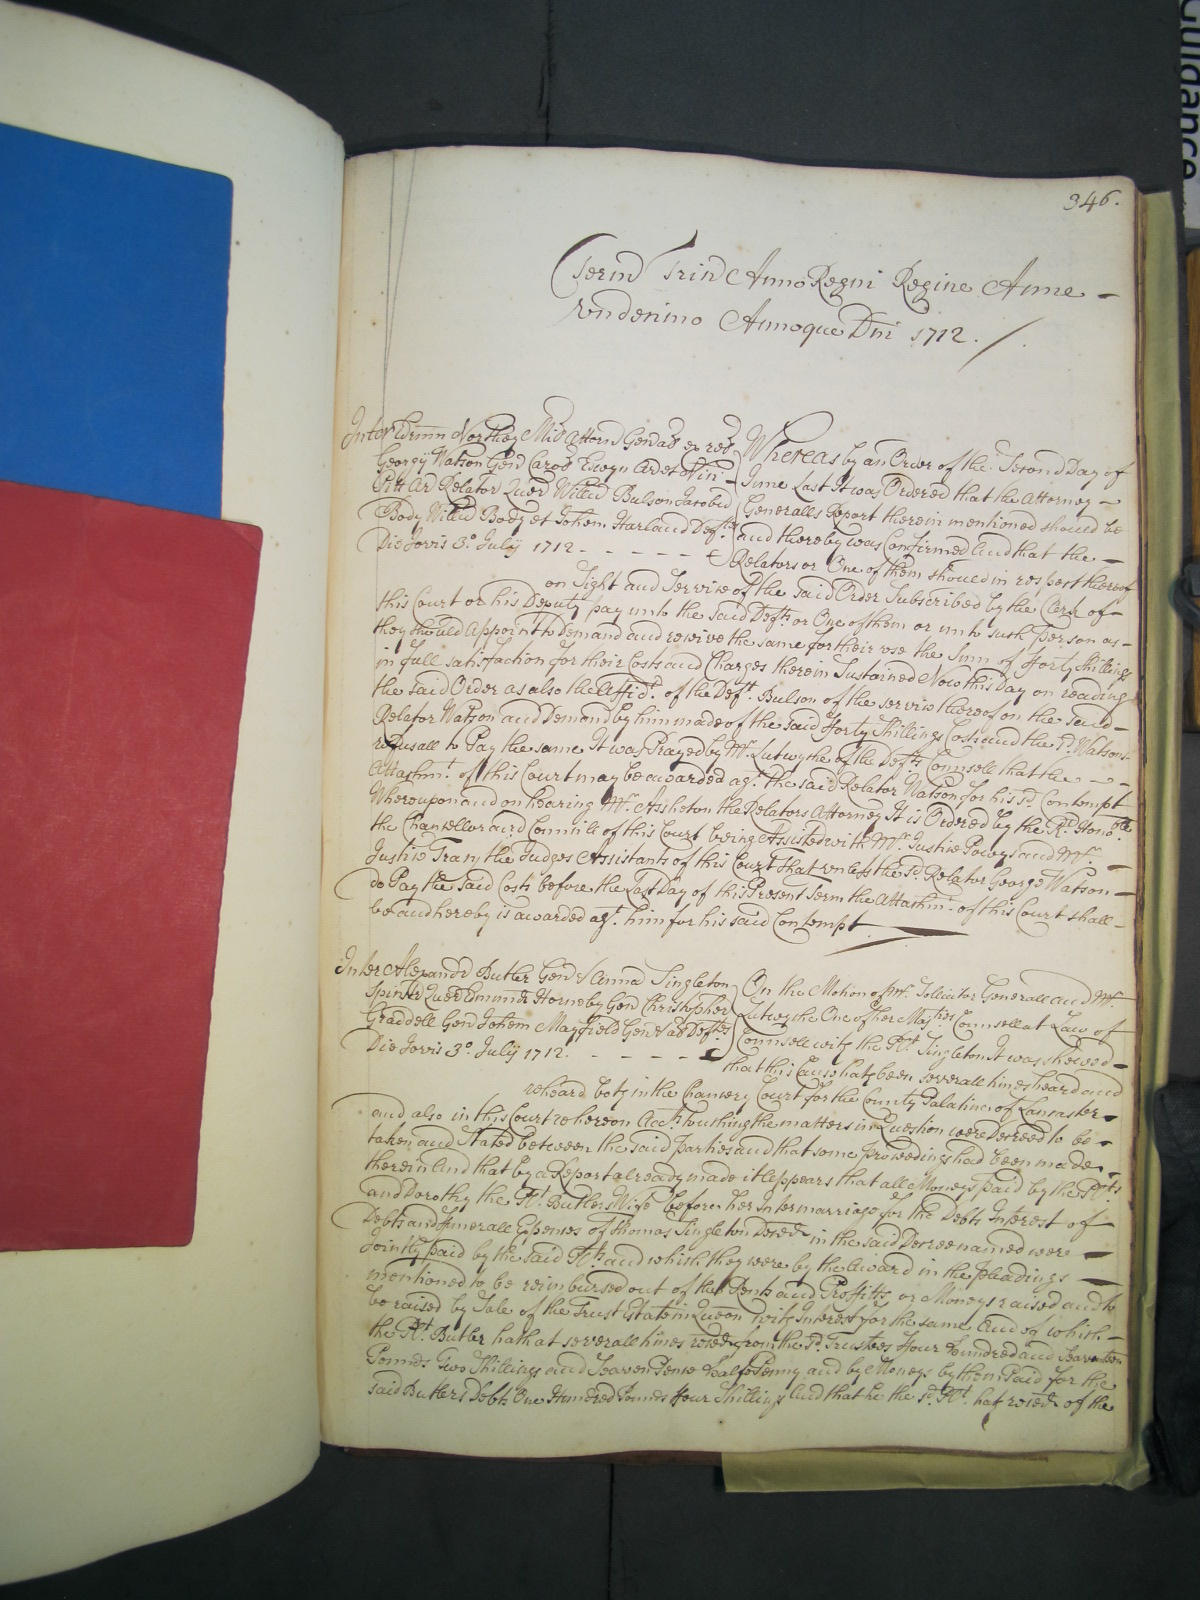 Guidance
346.
Term Trin Anno Regni Regine Anne
vndecimo Annoque Dni 1712.
Inter Edmn Northey Mil Attorn Genal ex rel
Georgij Watson Gen Carol Edwyn Ar et
Pitt Ar Relator Quer Willm Bulson Jacobu
Body Willm Body et Johem Harland Defts
Die Jovis 3o. July 1712
Whereas by an Order of the Second Day of
June Last It was Ordered that the Attorney
Generalls Report therein mentioned should be
and thereby was Confirmed And that the
Relators or One of them should in respect thereof
on Sight and Service of the said Order Subscribed by the Clerk of
this Court or his Deputy pay unto the said Defts or One of them or unto such Person as
they should Appoint to Demand and receive the same for their use the Sum of Forty Shillings
in full satisfaction for their Costs and Charges therein Sustained Now this Day on reading
the said Order as also the Affidt. of the Deft. Bulson of the service thereof on the said
Relator Watson and Demand by him made of the said Forty Shillings Costs and the sd. Watsons
refusall to Pay the same It was Prayed by Mr. Lutwyche of the Defts Counsell that the
Attachmt. of this Court may be awarded agt. the said Relator Watson for his sd. Contempt
Whereupon and on hearing Mr. Assheton the Relators Attorney It is Ordered by the Rt. Honoble
the Chancellor and Councill of this Court being Assisted with Mr. Justice Powys and Mr.
Justice Tracy the Judges Assistants of this Court that unless the sd. Relator George Watson
do Pay the said Costs before the Last Day of this Present Term the Attachmt. of this Court shall
be and hereby is awarded agt. him for his said Contempt
Inter Alexandr Butler Gen & Anna Singleton
Spinstr Quer Edmund Horneby Gen Christopher
Graddell Gen Johem Mayfield Gen & al Defts
Die Jovis 3o. July 1712.
On the Motion of Mr. Sollicitor Generall and Mr.
Lutwyche One of her Majties Counsell at Law of
Counsell with the Plt. Singleton It was shewed
that this Cause hath been severall times heard and
reheard both in the Chancery Court for the County Palatine of Lancaster
and also in this Court whereon Accts. touching the matters in Question were Decreed to be
taken and Stated between the said Parties and that some Proceedings had been made
therein And that by a Report already made it Appears that all Moneys paid by the Plts
and Dorothy the Plt. Butlers Wife before her Intermarriage for the Debts Interest of
Debts and Funerall Expenses of Thomas Singleton Deced in the said Decree named were
Jointly paid by the said Plts and which they were by the Award in the pleadings
mentioned to be reimbursed out of the Rents and Proffitts or Moneys raised and to
be raised by Sale of the Trust Estate in Queon with Interest for the same And of which
the Plt. Butler hath at severall times reced from the sd. Trustees Four Hundred and Seaventeen
Pounds Two Shillings and Seaven Pence Halfe Penny and by Moneys by them Paid for the
said Butlers Debts One Hundred Pounds Four Shillings And that he the sd. Plt. hath reced of the